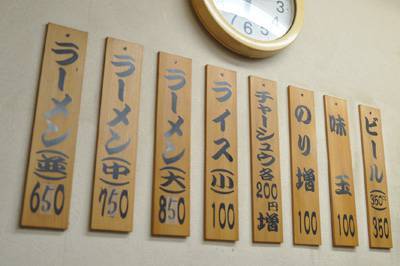 ラーメン(並)650
ラーメン(中)750
ラーメン(大)850
ライス(小)100
チャーシュウ各200円増
のり増100
味玉100
ビール(350㎖)350